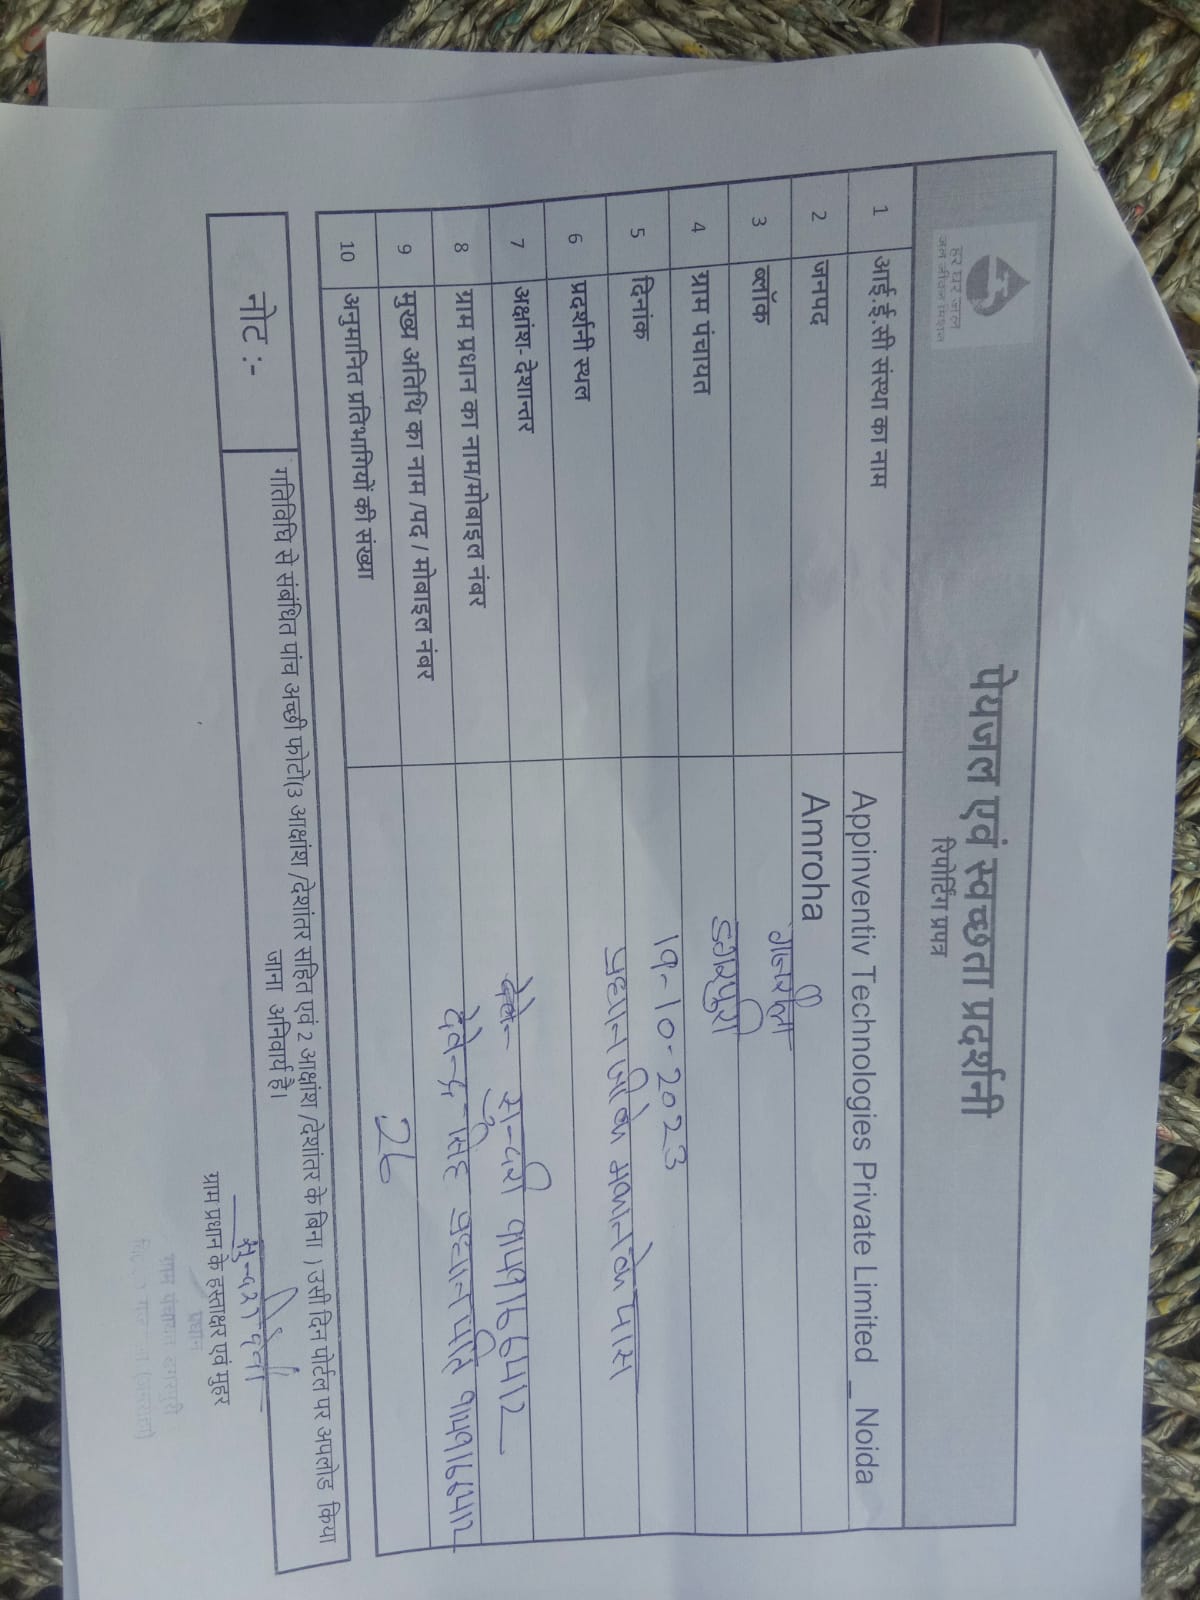 हर घर जल
जल जीवन मिशन
पेयजल एवं स्वच्छता प्रदर्शनी
रिपोर्टिंग प्रपत्र
1 आई.ई.सी संस्था का नाम Appinventiv Technologies Private Limited _ Noida
2 जनपद Amroha
3 ब्लॉक
4 ग्राम पंचायत डगरपुरी
5 दिनांक 19-10-2023
6 प्रदर्शनी स्थल प्रधान जी के मकान के पास
7 अक्षांश-देशान्तर
8 ग्राम प्रधान का नाम/मोबाइल नंबर
9 मुख्य अतिथि का नाम /पद / मोबाइल नंबर देवेन्द्र सिंह प्रधान पति
10 अनुमानित प्रतिभागियों की संख्या 26
नोट :-
गतिविधि से संबंधित पांच अच्छी फोटो(3 आक्षांश /देशांतर सहित एवं 2 आक्षांश /देशांतर के बिना ) उसी दिन पोर्टल पर अपलोड किया
जाना अनिवार्य है।
ग्राम प्रधान के हस्ताक्षर एवं मुहर
प्रधान